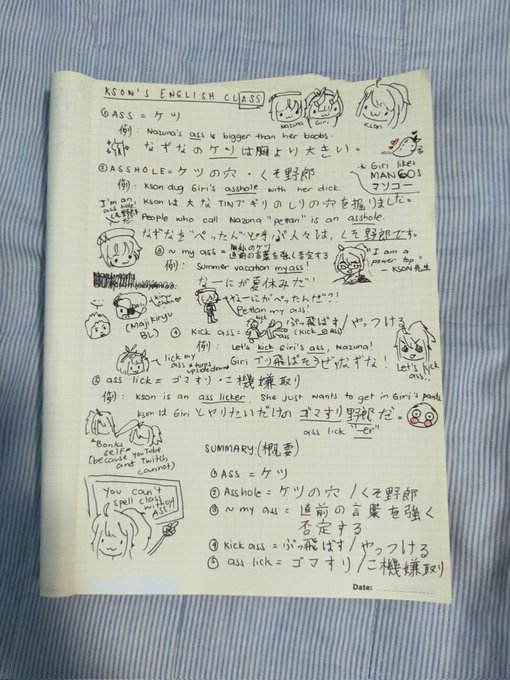 KSON'S ENGLISH CLASS
① ASS = ケツ
例: Nazuna's ass is bigger than her boobs.
なずなのケツは胸より大きい。
Nazuna
Giri
Kson
② ASSHOLE = ケツの穴・くそ野郎
例: Kson dug Giri's asshole with her dick.
Ksonは大なTINでギリのしりの穴を掘りました。
Giri likes
MANGOS
マンゴー
I'm an
ass hole
くそ野郎
だ
People who call Nazuna "pettan" is an asshole.
なずなを"ぺったん"と呼ぶ人々は、くそ野郎です。
③ ~ my ass =
直前の言葉を強く否定する
例: Summer vacation my ass!
なーにが夏休みだ!
"I am a
power top"
- KSON先生
なーにがぺったんだ?!
Pettan my ass!
(Majikiryu
BL)
④ Kick ass = ぶっ飛ばす/やっつける
(Kick ASS)
例: Let's kick Giri's ass, Nazuna!
Giri ブッ飛ばそうぜなずな!
Let's kick
ass!
lick my
ass & turn
upside down
⑤ ass lick = ゴマすり・ご機嫌取り
例: Kson is an ass licker. She just wants to get in Giri's pants
KsonはGiriとヤりたいだけのゴマすり野郎だ。
ass lick "-er"
*Bonks
self*
(because YouTube
and Twitch
cannot)
SUMMARY: (概要)
① ASS = ケツ
② Asshole = ケツの穴/くそ野郎
③ ~ my ass = 直前の言葉を強く
否定する
④ Kick ass = ぶっ飛ばす/やっつける
⑤ ass lick = ゴマすり/ご機嫌取り
You can't
spell class
without
ASS
Date: